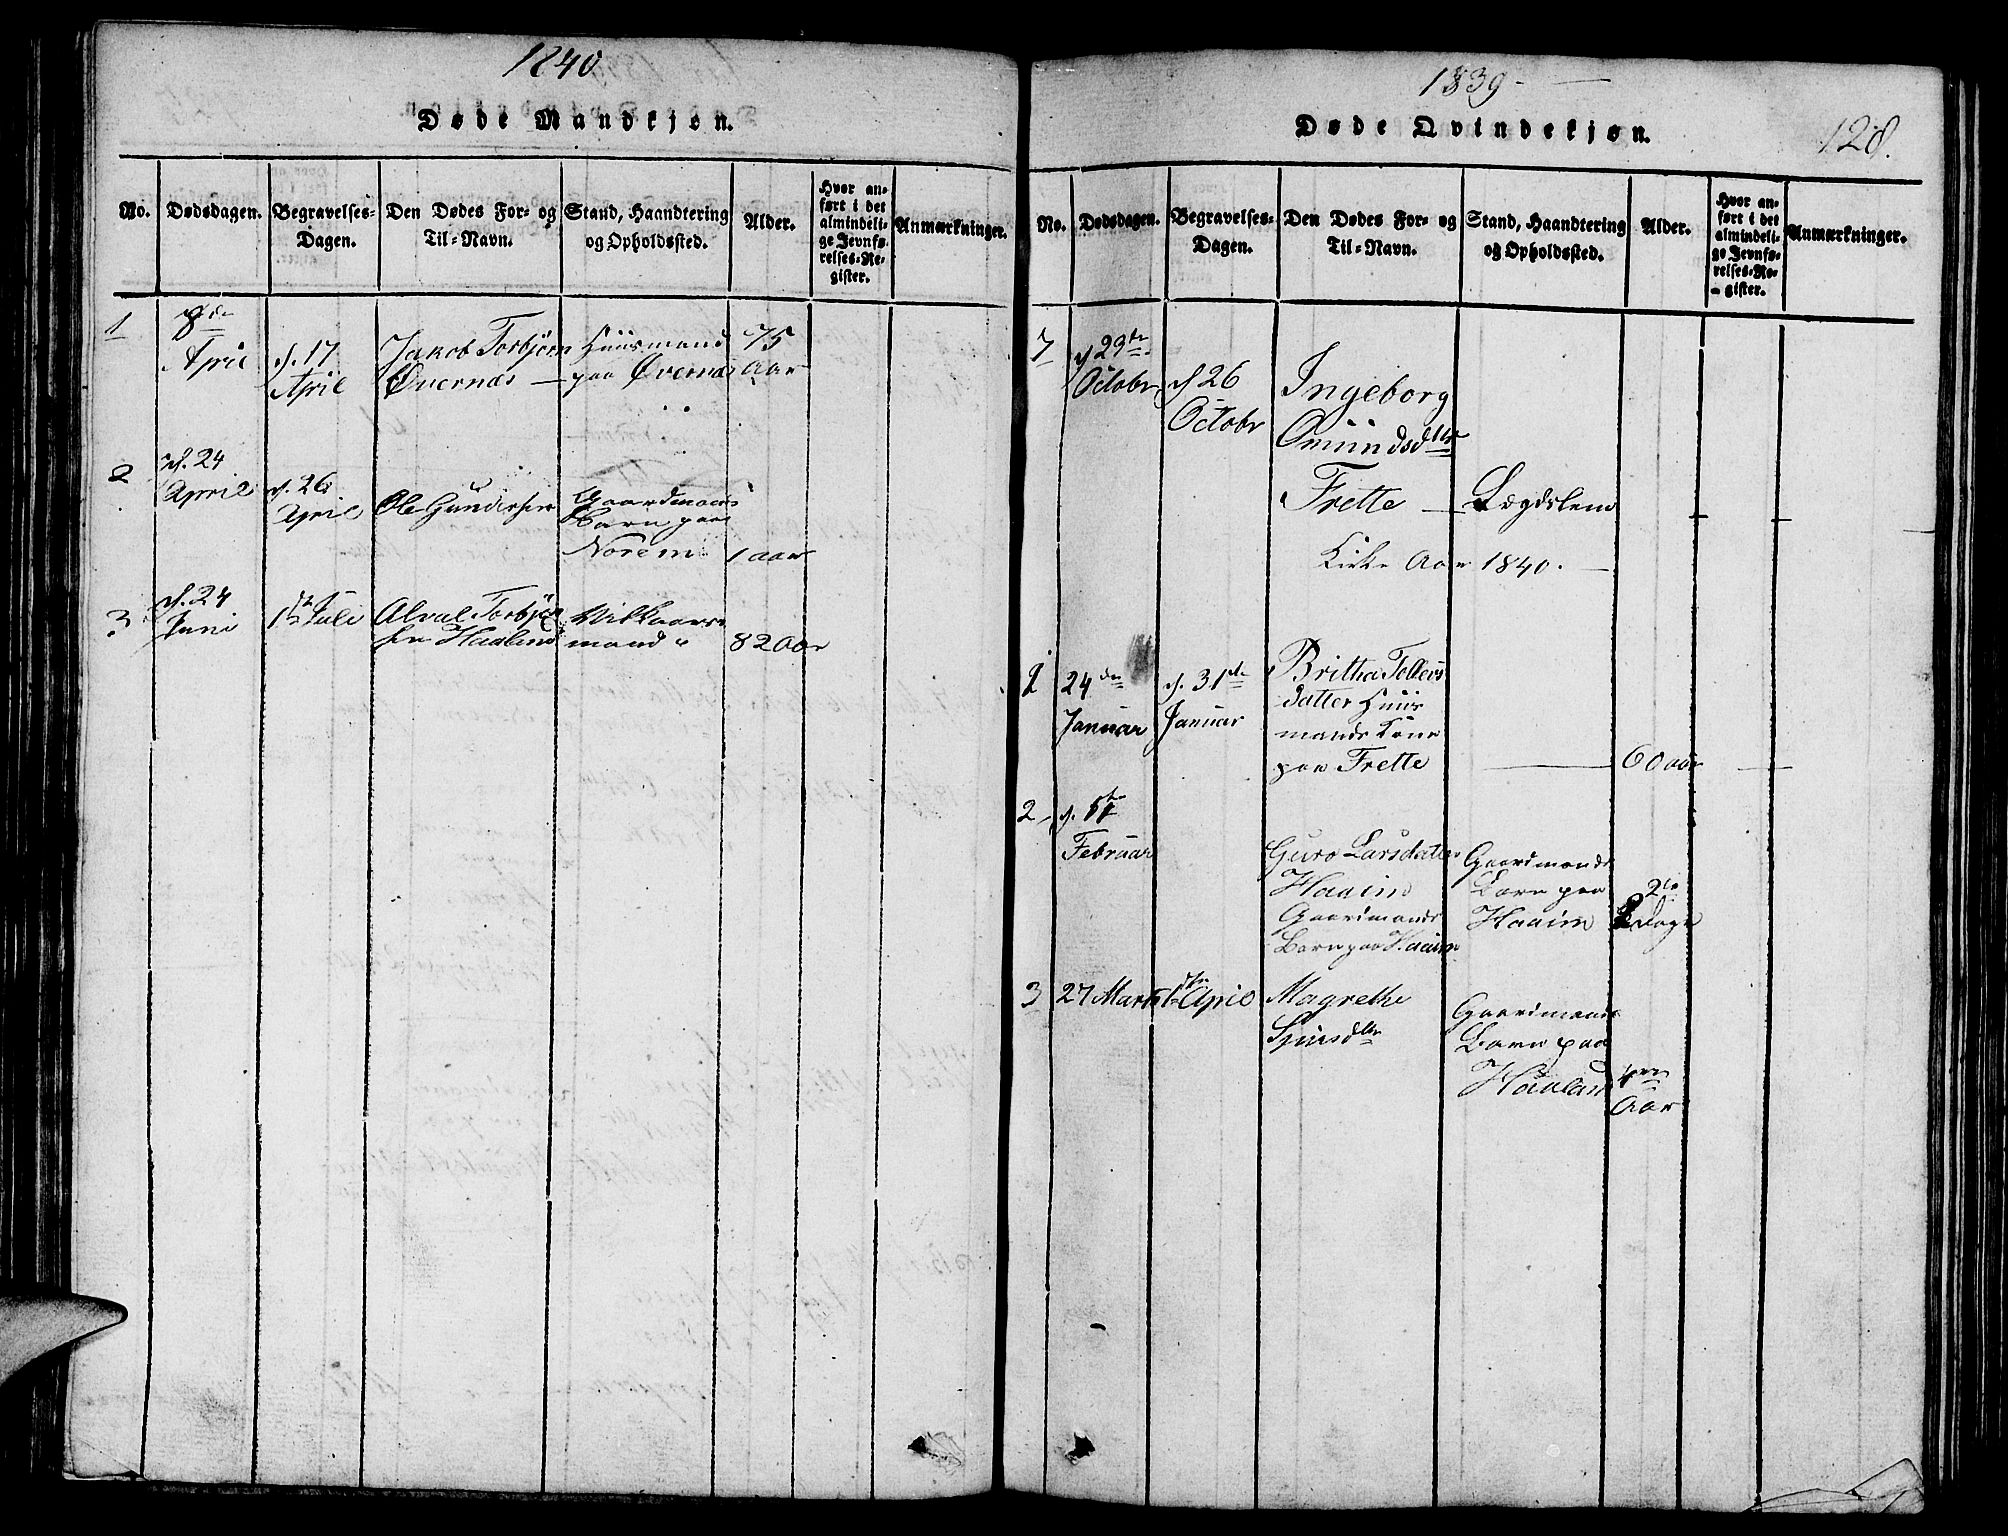 1840
Døde Mandkjøn.
No.
Dødsdagen.
Begravelses-
Dagen.
Den Dødes For- og
Til-Navn.
Stand, Haandtering
og Opholdssted.
Alder.
Hvor an-
ført i det
almindeli-
ge Jevnfø-
relses-Re-
gister.
Anmærkninger.
1
8de
April
d. 17
April
Jakob Torbjørn
Øvernæs —
Huusmand
paa Øvernæs
75
Aar
2
d. 24
April
d. 26
April
Ole Gundersen
Gaardmands
Barn paa
Norem
1 aar
3
d. 24
Juni
1ste Juli
Torbjørn
sen Haaland
Vilkaars
mand
82 Aar
1839 -
Døde Qvindekjøn.
128.
No.
Dødsdagen.
Begravelses-
Dagen.
Den Dødes For- og
Til-Navn.
Stand, Haandtering
og Opholdssted.
Alder.
Hvor an-
ført i det
almindeli-
ge Jevnfø-
relses-Re-
gister.
Anmærkninger.
7
d 23de
Octobr
d 26
Octobr
Ingeborg
Omundsdttr
Frette —
Lægdslem
Kirke Aar 1840. —
24de
Januar
d. 31te
Januar
Britha Tollers
datter Huus
mands Kone
paa Frette
60 aar
2
Februar
Guro Larsdatter
Haaim
Gaardmands
Barn paa Haaim
Gaardmands
Barn paa
Haaim
Dage
3
27 Marts
1ste April
Magrethe
Sjursdttr
Gaardmands
Barn paa
Haaland
Aar